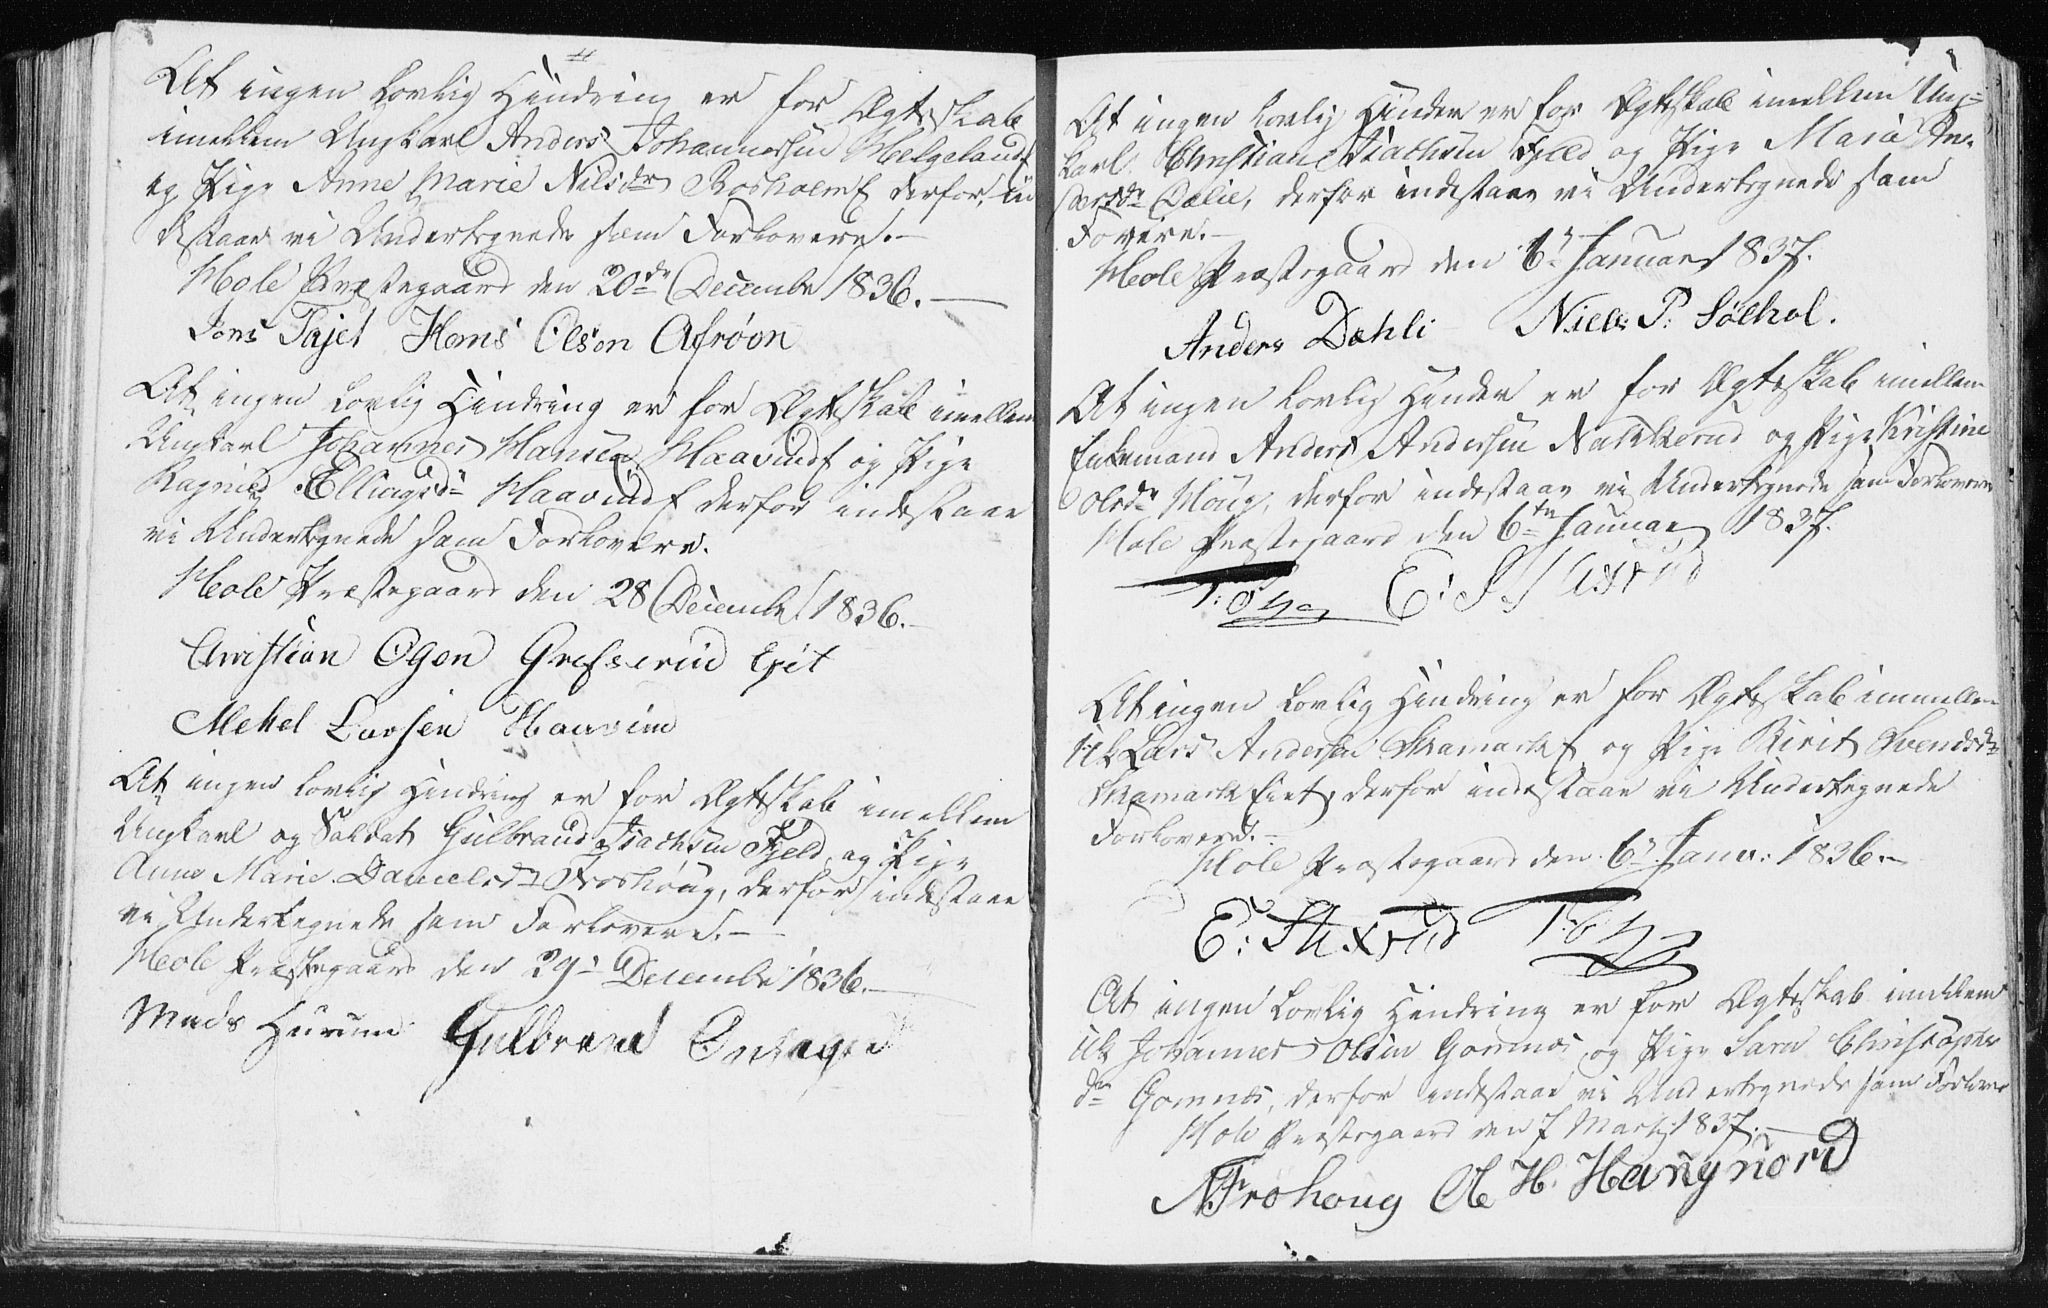 At ingen Lovlig Hindring er for Ægteskab
imellem Ungkarl Anders Johannesen Helgelandsf
og Pige Anne Marie Nilsdr Rosholmf derfor in
destaar vi Undertegnede som Forlovere.-
Hole Præstegaard den 20de December 1836.
Jons Tajet Hans Olson Afrøon
At ingen Lovlig Hindring er for Ægteskab imellem
Ungkarl Johannes Hansen Haavindf og Pige
Ragnild Ellingsdr Haavindf derfor indestaae
vi Undertegnede som Forlovere.
Hole Præstegaard den 28 December 1836.
Christian Ogon Grefserud Ejet
Mekel Larsen Haavim
At ingen lovlig Hindring er for Ægteskab imellem
Ungkarl og Soldat Gulbrand Isachsen Fjeld, og Pige
Anne Marie Danielsdr Froshoug, derfor indestaae
vi Undertegnede som Forlovere.-
Hole Præstegaard den 29. December 1836.-
Mads Hurum Gulbrand
At ingen lovlig Hinder er for Ægteskab imellem Ung=
karl Christian Isachsen Fjeld og Pige Maria An=
dersdr Dælie, derfor indestaae vi Undertegnede som
Fovere.-
Hole Præstegaard den 6te Januar 1837.
Anders Dæhli Niels P. Solhol.
At ingen lovlig Hinder er for Ægteskab imellem
Enkemand Anders Andersen Nakkerud og Pige Kristine
Olsdr Houg, derfor indestaae vi Undertegnede som Forlovere
Hole Præstegaard den 6te Januar 1837.
E: Stixrud
At ingen Lovlig Hindring er for Ægteskab immellem
Uk Lars Andersen Skamarkf og Pige Birit Svendsdr
Skamark Eiet, derfor indestaae vi Undertegnede
Forlovere.-
Hole Præstegaard den 6te Janu: 1836.-
E: Stixrud
At ingen Lovlig Hindring er for Ægteskab imellem
Uk Johannes Olsen Gomnæs, og Pige Sara Christophers
dr Gomnæs, derfor indestaae vi Undertegnede som Forlovere
Hole Præstegaard den 7 Marts 1837.-
N. Frøhoug Ole H. Hangnord